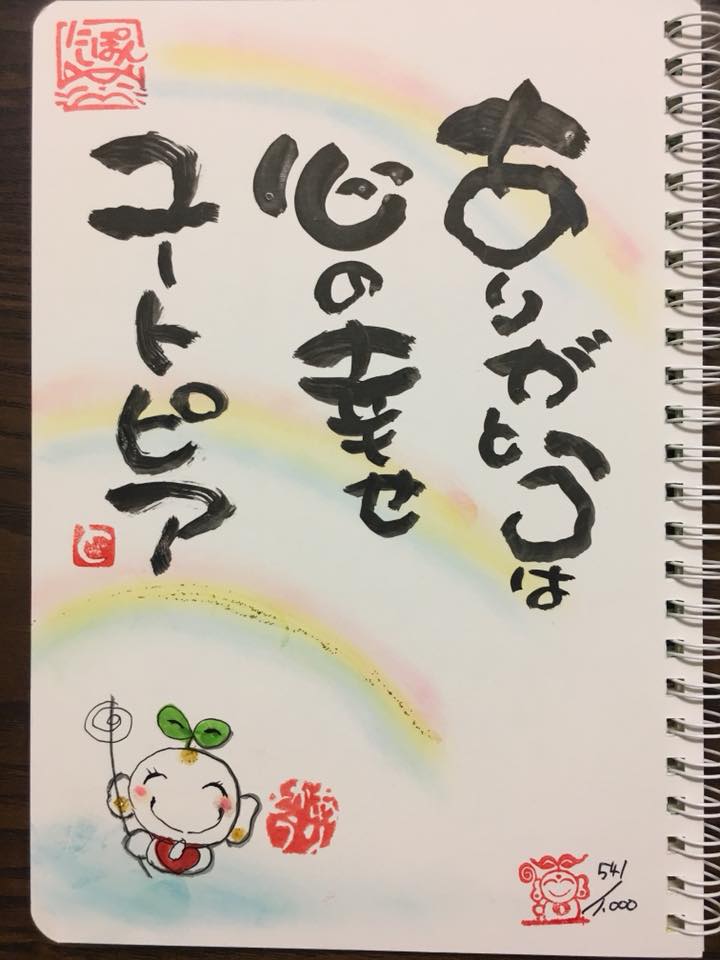 ありがとうは
心の幸せ
ユートピア
にしぽん
541/1,000